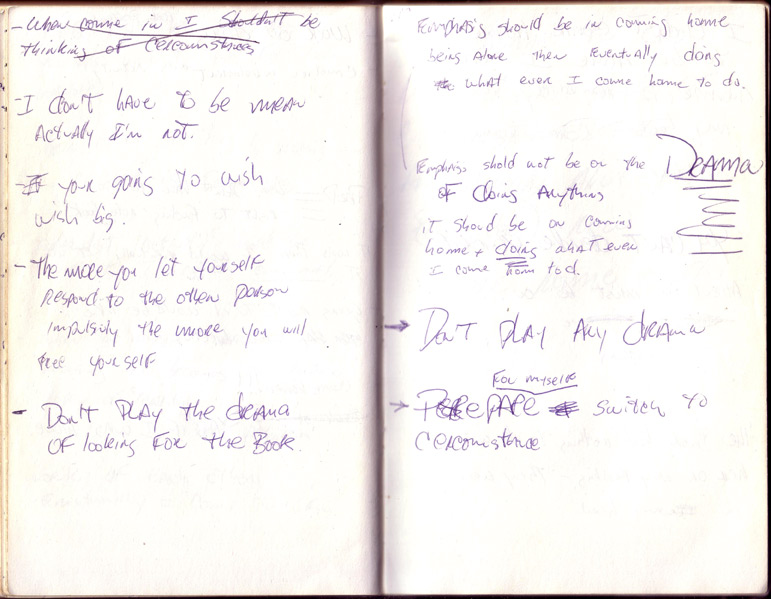 - When come in I shouldn't be
thinking of Cercomstnces
- I don't have to be mean
Actually I'm not.
- If your going to wish
wish big.
- The more you let yourself
Respond to the other person
impulsivly the more you will
free yourself
- Don't Play the drama
of looking for the Book.
Emphasis should be in coming home
being Alone then Eventually doing
what ever I come home to do.
Emphass shold not be on the Drama
of doing Anything
it should be on coming
home + doing what ever
I come home to d.
→ Don't Play Any drama
For myself
→ Prepare switch to
Cercomstance